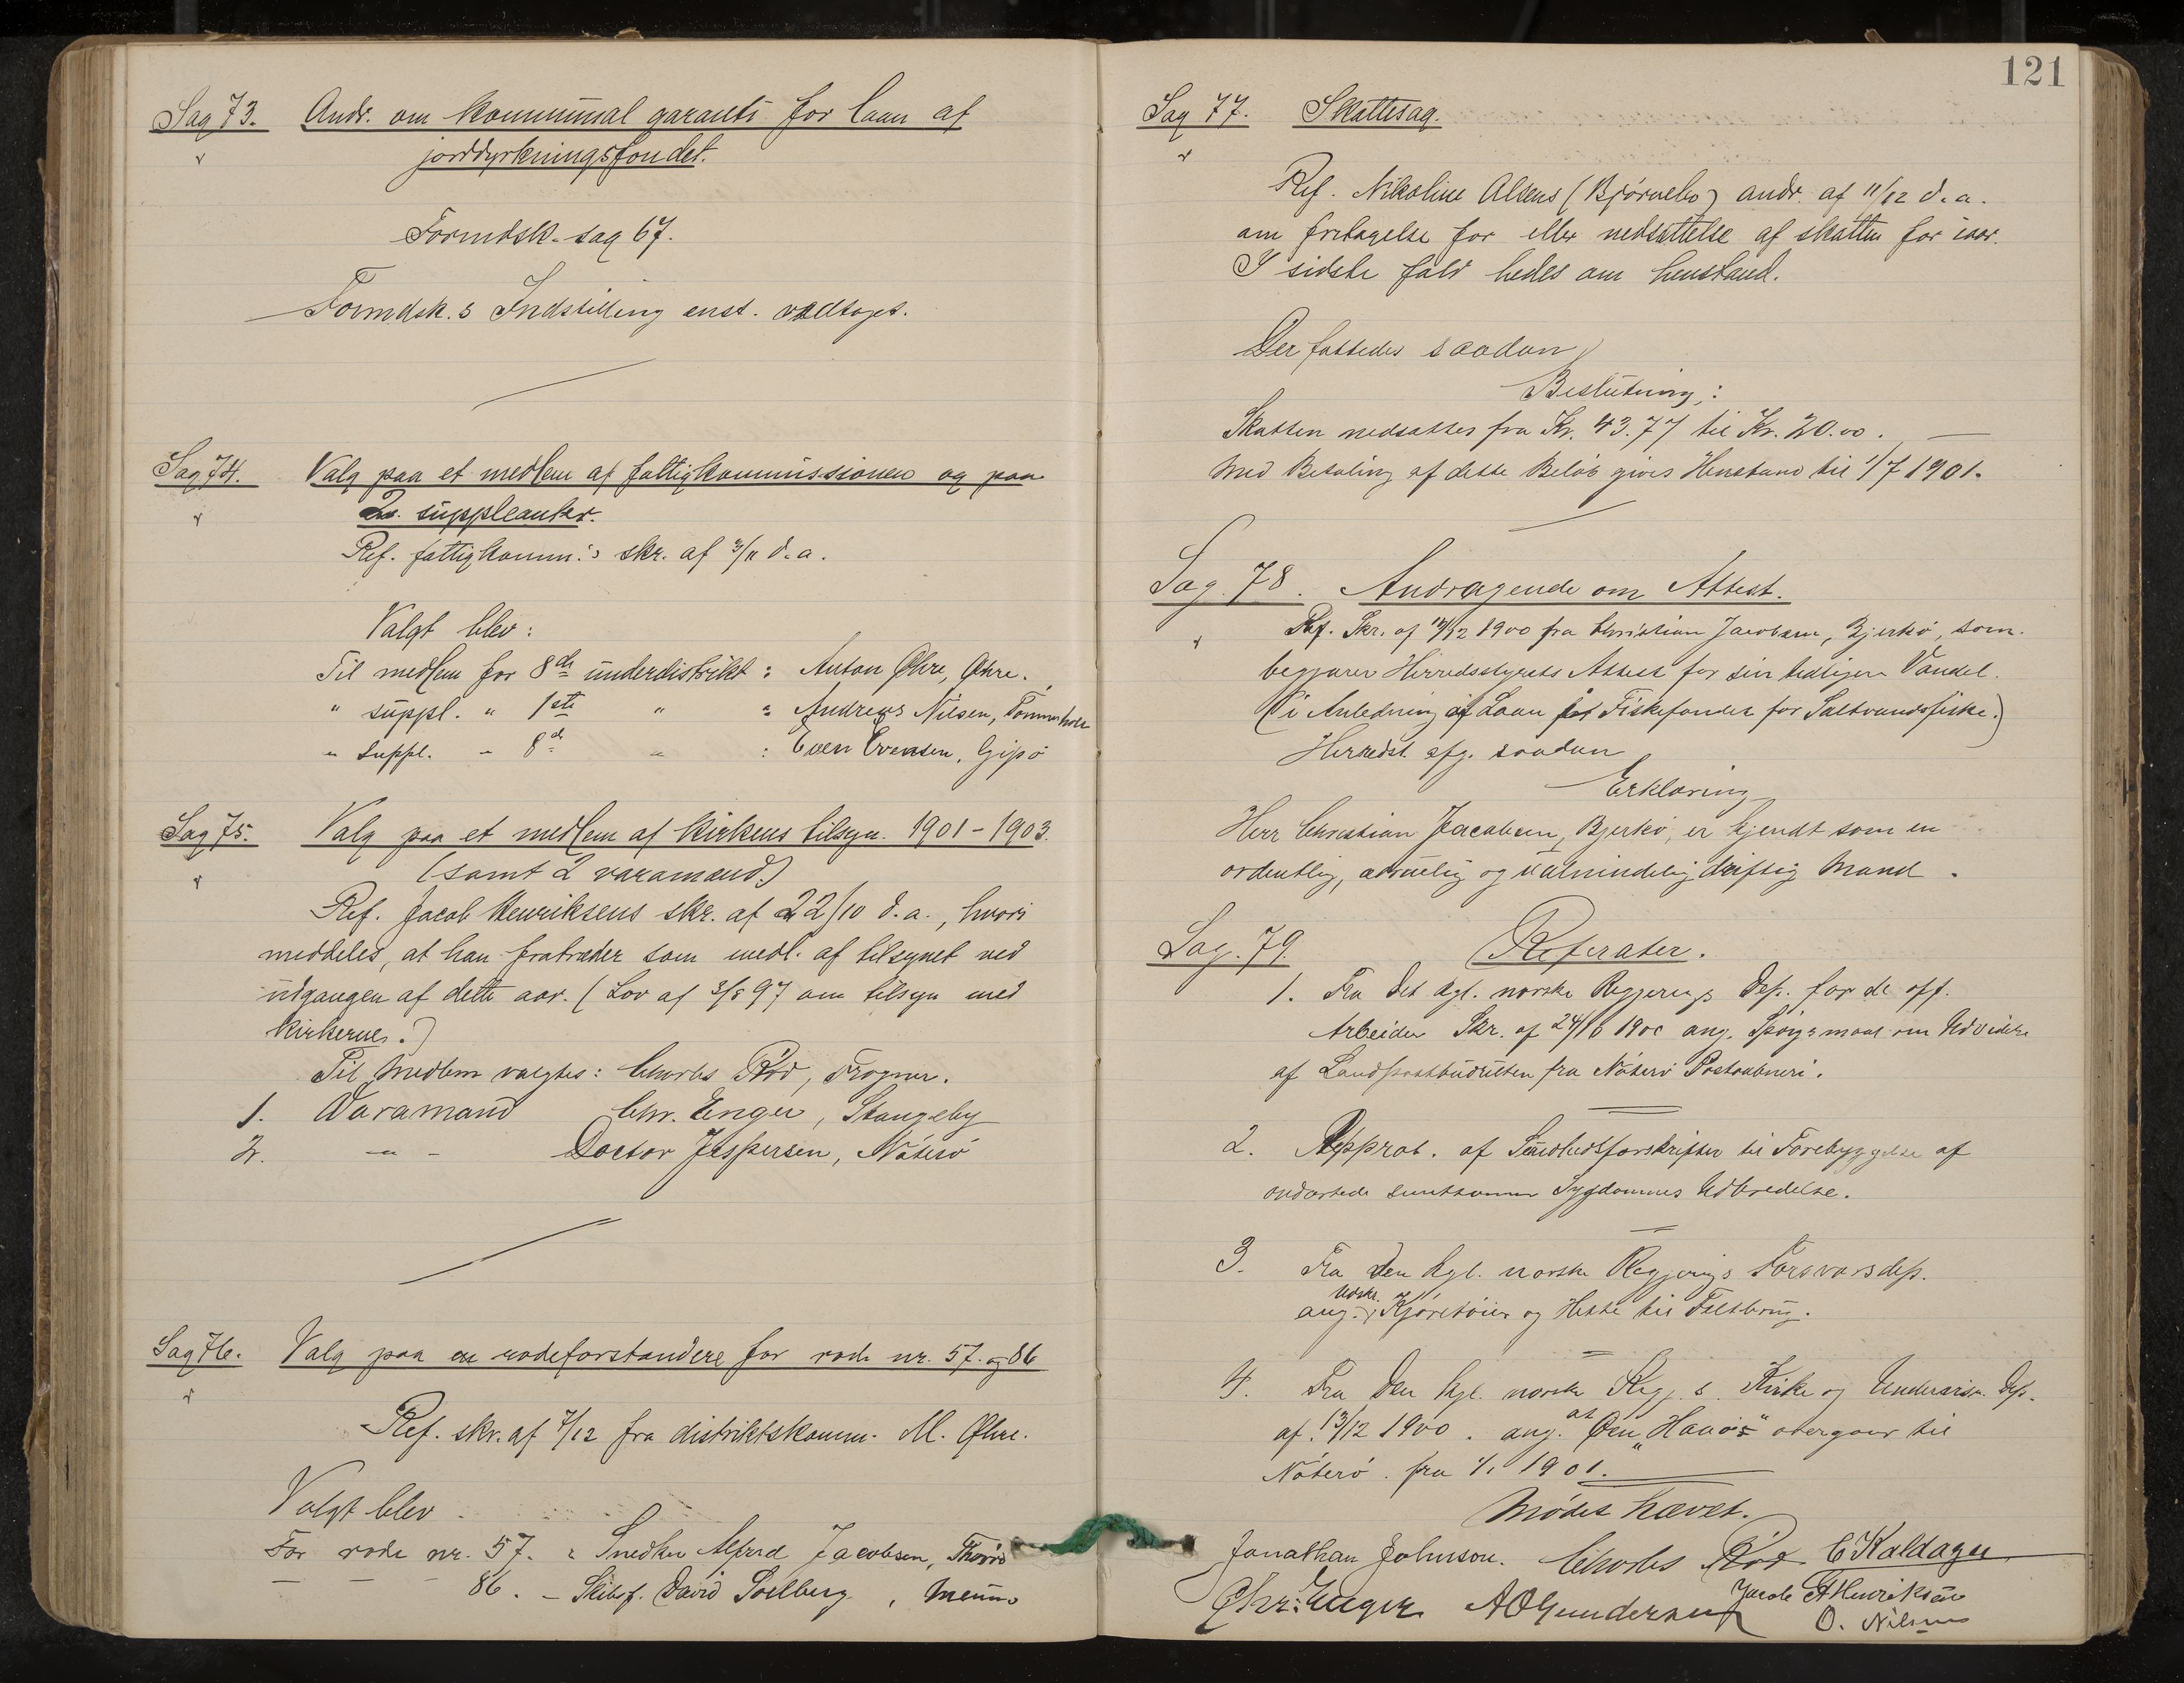 Sag 73. Andr. om kommunal garanti for laan af
jorddyrkningsfondet.
Formdsk. sag 67.
Formdsk.s Indstilling enst. vedtaget.
Sag 74. Valg paa et medlem af fattigkommissionen og paa
2 suppleanter.
Ref. fattigkomm.'s skr. af 3/11 d.a.
Valgt blev:
Til medlem for 8de underdistrikt: Anton Øhre, Øhre.
" suppl. " 1ste " : Andreas Nilsen,
" suppl. - 8de " : Even Evensen, Gipö
Sag 75. Valg paa et medlem af kirkens tilsyn 1901-1903.
(samt 2 varamænd.)
Ref. Jacob Henriksens skr. af 22/10 d.a., hvori
meddeles, at han fratræder som medl. af tilsynet ved
udgangen af dette aar. (Lov af 3/8 97 om tilsyn med
kirkerne.)
Til Medlem valgtes: Charles Röd, Trogner.
1. Varamand Chr. Enger, Stangeby
2. - " - Doctor Jespersen, Nöterö
Sag 76. Valg paa rodeforstandere for rode nr. 57. og 86
Ref. skr. af 7/12 fra distriktskomm. M. Øhre.
Valgt blev
For rode nr. 57. : Snedker Alfred Jacobsen,
— — - 86. - Skibsf. David Soelberg,
121
Sag 77. Skattesag.
Ref. Nikoline Olsens (Björnebo) andr. af 11/12 d.a.
om fritagelse for eller nedsættelse af skatten for iaar.
I sidste fald bedes om henstand.
Der fattedes saadan
Beslutning:
Skatten nedsættes fra Kr. 43.77 til Kr. 20.00. —
Med Betaling af dette Beløb gives Henstand til 1/7 1901.
Sag. 78. Andragende om Attest.
Ref. Skr. af 12/12 1900 fra Christian Jacobsen, Bjerkö, som
begjærer Herredsstyrets Attest for sin tidligere Vandel.
(i Anledning af Laan for Fiskefondet for Saltvandsfiske.)
Herredst. afg. saadan
Erklæring
Herr Christian Jacobsen, Bjerkö, er kjendt som en
ordentlig, ædruelig og ualmindelig driftig Mand.
Sag. 79. Referater.
1. Fra Det kgl. norske Regjerings Dep. for de off.
Arbeider Skr. af 24/10 1900 ang. Spörgsmaal om Udvidelse
af Landpostbudruten fra Nöterö Postaabneri.
2. Approb. af Sundhedsforskrifter til Forebyggelse af
ondartede smitsomme Sygdommes Udbredelse.
3. Fra Den kgl. norske Regjerings Forsvarsdep.
ang. Udskr. af Kjöretöier og Heste til Feltbrug.
4. Fra Den kgl. norske Regj.s Kirke og Undervisn. Dep.
af 13/12 1900. ang. at Øen "Havö" overgaar til
Nöterö. fra 1/1 1901.
Mödet hævet.
Jonathan Johnson. Charles Röd C Kaldager
Chr: Enger A O Gundersen Jacob A Henriksen
O. Nilsen